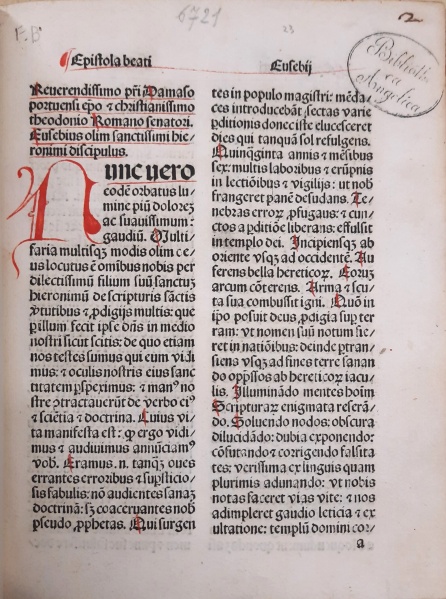 E.B
6721
23
2
Bibliothecæ Angelica
Epistola beati
Eusebij
Reuerendissimo pr̄i Damaso
portuensi ep̄o ⁊ christianissimo
theodonio Romano senatori.
Eusebius olim sanctissimi hie/
ronimi discipulus.
Nunc uero
eodē orbatus lu
mine piū dolorez
ac suauissimum:
gaudiū. Multi
faria multisqꝫ modis olim ce
us locutus ē omībus nobis per
dilectissimū filium suū sanctuz
hieronimū de scripturis sāctis
v̄tutibus ⁊ ꝓdigijs multis: que
ꝑ illum fecit ipse dn̄s in medio
nostri sicut scitis: de quo etiam
nos testes sumus qui eum vidi
mus: ⁊ oculis nostris eius sanc
titatem ꝑspeximus: ⁊ manꝰ no
stre ꝯtractauerūt de verbo eiꝰ
⁊ sciētia ⁊ doctrina. Cuius vi
ta manifesta est: ꝙ ergo vidi
mus ⁊ audiuimus annūciamꝰ
vob̄. Eramus. n. tanqꝫ oues
errantes erroribus ⁊ suꝑsticio/
sis fabulis: nō audientes sanaꝫ
doctrinā: sꝫ coaceruantes nob̄
pseudo ꝓphetas. Qui surgen
tes in populo magistri: mēda/
ces introducebāt sectas varie
ꝑditionis donec iste elucesceret
dies qui tanquā sol refulgens.
Quinqꝫginta annis ⁊ mēsibus
sex: multis laboribus ⁊ erūpnis
in lectiōibus ⁊ vigilijs: ut nob̄
frangeret panē desudans. Te/
nebras erroꝝ ꝓfugaus: ⁊ cun/
ctos a ꝑditiōe liberans: effulsit
in templo dei. Incipiensqꝫ ab
oriente vsqꝫ ad occidentē. Au
ferens bella hereticoꝝ. Eoruꝫ
arcum cōterens. Arma ⁊ scu/
ta sua combussit igni. Quō in
ip̄o posuit deus ꝓdigia suꝑ ter
ram: ut nomen suū notum fie/
ret in natiōibus: deinde ꝑtran/
siens vsqꝫ ad fines terre sanan
do opp̄ssos ab hereticoꝝ iacu/
lis. Illuminādo mentes hoīm
Scripturaꝝ enigmata reserā/
do. Soluendo nodos: obscura
dilucidādo: dubia exponendo:
cōfutando ⁊ corrigendo falsita
tes: verissima ex linguis quam
plurimis adunando: vt nobis
notas faceret vias vite: ⁊ nos
adimpleret gaudio leticia ⁊ ex
ultatione: templū domini cor/
a